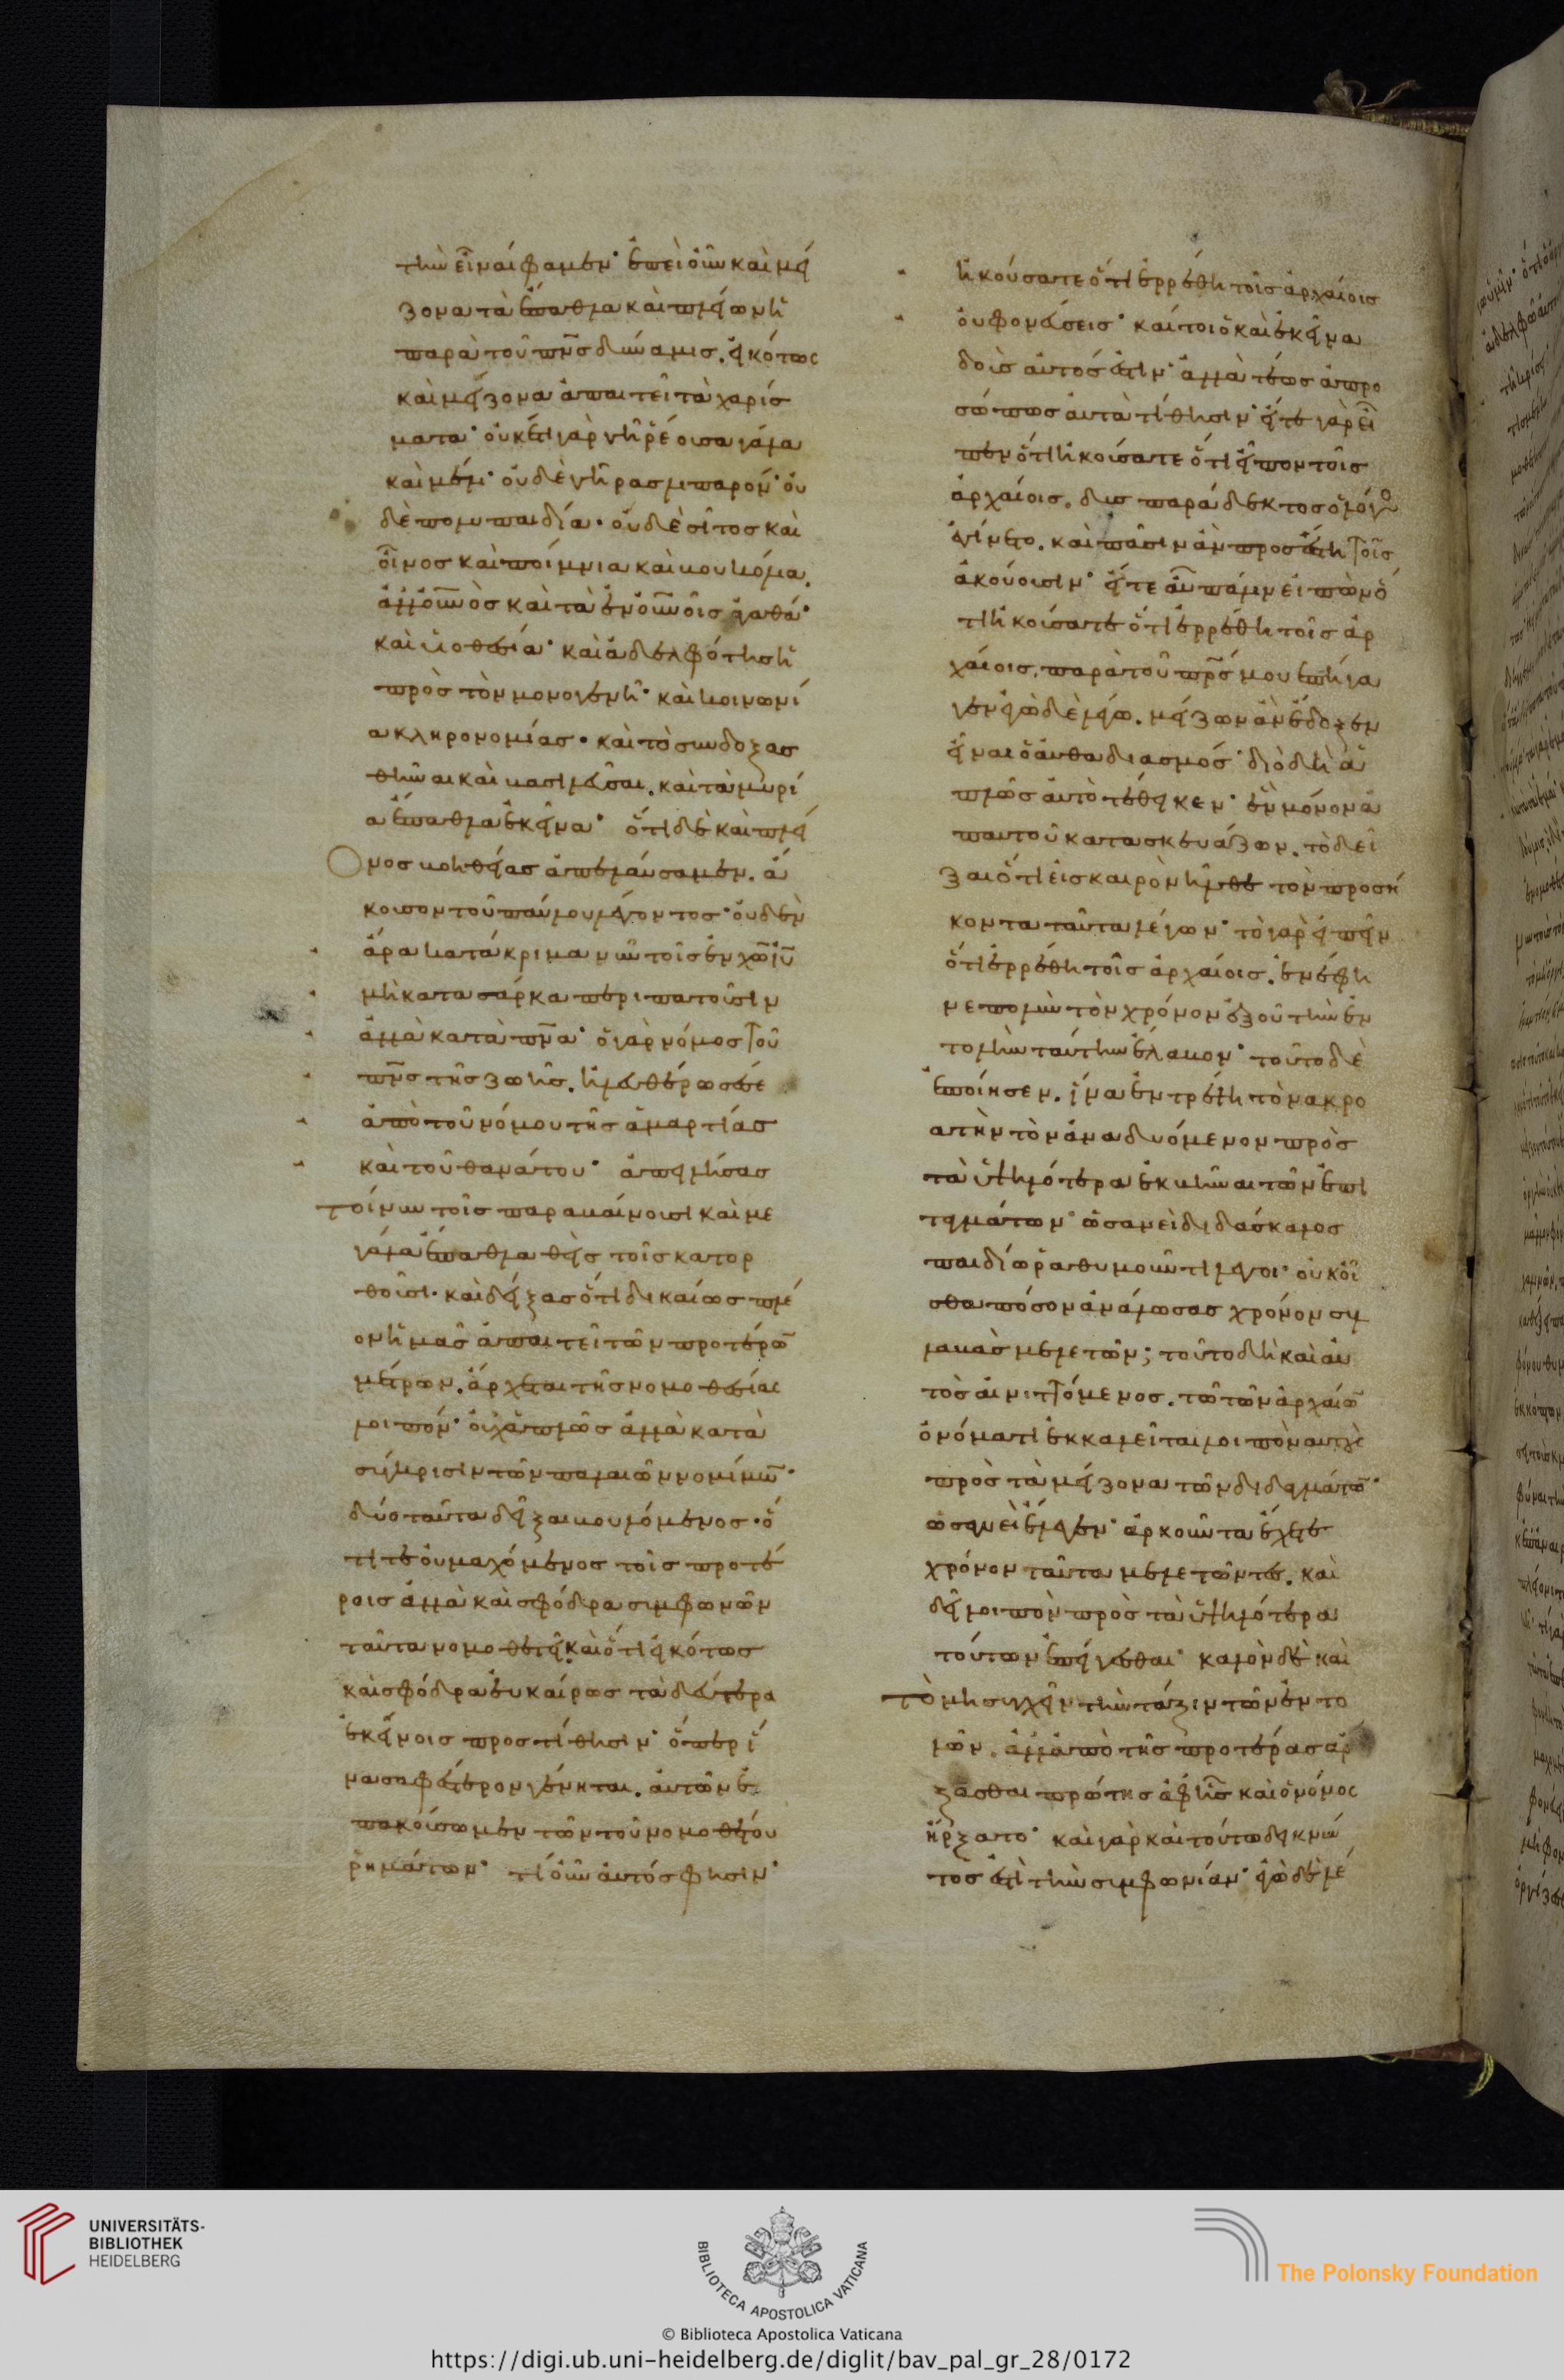 την εἶναι φαμεν· ἐπεὶ οὖν καὶ μεί
ζονα τὰ ἔπαθλα καὶ πλείων ἡ
παρὰ τοῦ πν̅ς δύναμις. εἰκότως
καὶ μείζονα ἀπαιτεῖ τὰ χαρίσ
ματα· οὐκέτι γὰρ γῆ ῥέουσα γάλα
καὶ μέλι· οὐδὲ γῆρας λιπαρόν· οὐ
δὲ πολυπαιδία· οὐδὲ σῖτος καὶ
οἶνος καὶ ποίμνια καὶ βουκόλια.
ἀλλ' οὐ̅νὸς καὶ τὰ ἐν οὐ̅νοῖς ἀγαθά·
καὶ υἱοθεσία· καὶ ἀδελφότης ἡ
πρὸς τὸν μονογενῆ· καὶ κοινωνί
α κληρονομίας· καὶ τὸ συνδοξασ
θῆναι καὶ βασιλεῦσαι. καὶ τὰ μυρί
α ἔπαθλα ἐκεῖνα· ὅτι δὲ καὶ πλεί
Ονος βοηθείας ἀπελαύσαμεν. ἄ
κουσον τοῦ παύλου λέγοντος· οὐδὲν
ἄρα κατάκριμα νῦν τοῖς ἐν χω̅ ἰυ̅
μὴ κατα σάρκα περιπατοῦσιν
ἀλλὰ κατὰ πν̅α· ὁ γὰρ νόμος τοῦ
πν̅ς τῆς ζωῆς. ἠλευθέρωσέ σε
ἀπὸ τοῦ νόμου τῆς ἁμαρτίας
καὶ τοῦ θανάτου· ἀπειλήσας
τοίνυν τοῖς παραβαίνουσι καὶ με
γάλα ἔπαθλα θεὶς τοῖς κατορ
θοῦσι· καὶ δείξας ὅτι δικαίως πλέ
ον ἡμᾶς ἀπαιτεῖ τῶν προτέρω̅
μέτρων. ἄρχεται τῆς νομοθεσίας
λοιπόν· οὐχ ἁπλῶς ἀλλὰ κατὰ
σύγκρισιν τῶν παλαιῶν νομίμω̅·
δύο ταῦτα δεῖξαι βουλόμενος· ὅ
τι τε οὐ μαχόμενος τοῖς προτέ
ροις ἀλλὰ καὶ σφόδρα συμφωνῶν
ταῦτα νομοθετεῖ. καὶ ὅτι εἰκότως
καὶ σφόδρα εὐκαίρως τὰ δεύτερα
ἐκείνοις προστίθησιν· ὅπερ ἵ
να σαφέστερον γένηται. αὐτῶν ἐ
πακούσωμεν τῶν τοῦ νομοθέτου
ῥημάτων· τί οὖν αὐτός φησιν·
ἠκούσατε ὅτι ἐρρέθη τοῖς ἀρχαίοις
οὐ φονεύσεις· καίτοι ὁ καὶ ἐκεῖνα
δοὺς αὐτός ἐστιν· ἀλλὰ τέως ἀπρο
σώπως αὐτὰ τίθησιν· εἴτε γὰρ εἶ
πεν ὅτι ἠκούσατε ὅτι εἶπον τοῖς
ἀρχαίοις. δυσπαράδεκτος ὁ λόγο
ἐγίνετο. καὶ πᾶσιν ἂν προσέστη τοῖς
ἀκούουσιν· εἴτε αὖ πάλιν εἰπὼν ὅ
τι ἠκούσατε ὅτι ἐρρέθη τοῖς ἀρ
χαίοις. παρὰ τοῦ πρ̅ς μου ἐπήγα
γεν ἐγὼ δὲ λέγω. μείζων ἂν ἔδοξεν
εἶναι ὁ αὐθαδιασμός· διὸ δὴ ἁ
πλῶς αὐτὸ τέθεικεν· ἓν μόνον ἀ
π' αὐτοῦ κατασκευάζων. τὸ δεῖ
ξαι ὅτι εἰς καιρὸν ἦλθε τὸν προσή
κοντα ταῦτα λέγων· τὸ γὰρ εἰπεῖν
ὅτι ἐρρέθη τοῖς ἀρχαίοις. ἐνέφη
νε πολὺν τὸν χρόνον ἐξ οὗ τὴν ἐν
τολὴν ταύτην ἔλαβον· τοῦτο δὲ
ἐποίησεν. ἵνα ἐντρέψη τὸν ἀκρο
ατὴν τὸν ἀναδυόμενον πρὸς
τὰ ὑψηλότερα ἐκβῆναι τῶν ἐπι
ταγμάτων· ὡσανεὶ διδάσκαλος
παιδίω ῥαθυμοῦντι λέγοι· οὐκ οἶ
σθα πόσον ἀνάλωσας χρόνον συλ
λαβὰς μελετῶν; τοῦτο δὴ καὶ αὐ
τὸς αἰνιττόμενος. τῶ τῶν ἀρχαίω̅
ὀνόματι ἐκκαλεῖται λοιπὸν αὐτοὺς
πρὸς τὰ μείζονα τῶν διδαγμάτω̅·
ὡσανεὶ ἔλεγεν· ἀρκοῦντα ἔχετε
χρόνον ταῦτα μελετῶντες. καὶ
δεῖ λοιπὸν πρὸς τὰ ὑψηλότερα
τούτων ἐπείγεσθαι· καλὸν δὲ καὶ
τὸ μὴ συγχεῖν τὴν τάξιν τῶν ἐντο
λῶν. ἀλλ' ἀπὸ τῆς προτέρας ἄρ
ξασθαι πρώτης ἀφ' ἧς καὶ ὁ νόμος
ἤρξατο· καὶ γὰρ καὶ τοῦτο δεικνύν
τος ἐστὶ τὴν συμφωνίαν· ἐγὼ δὲ λέ
UNIVERSITÄTS-
BIBLIOTHEK
HEIDELBERG
BIBLIOTECA APOSTOLICA VATICANA
© Biblioteca Apostolica Vaticana
The Polonsky Foundation
https://digi.ub.uni-heidelberg.de/diglit/bav_pal_gr_28/0172